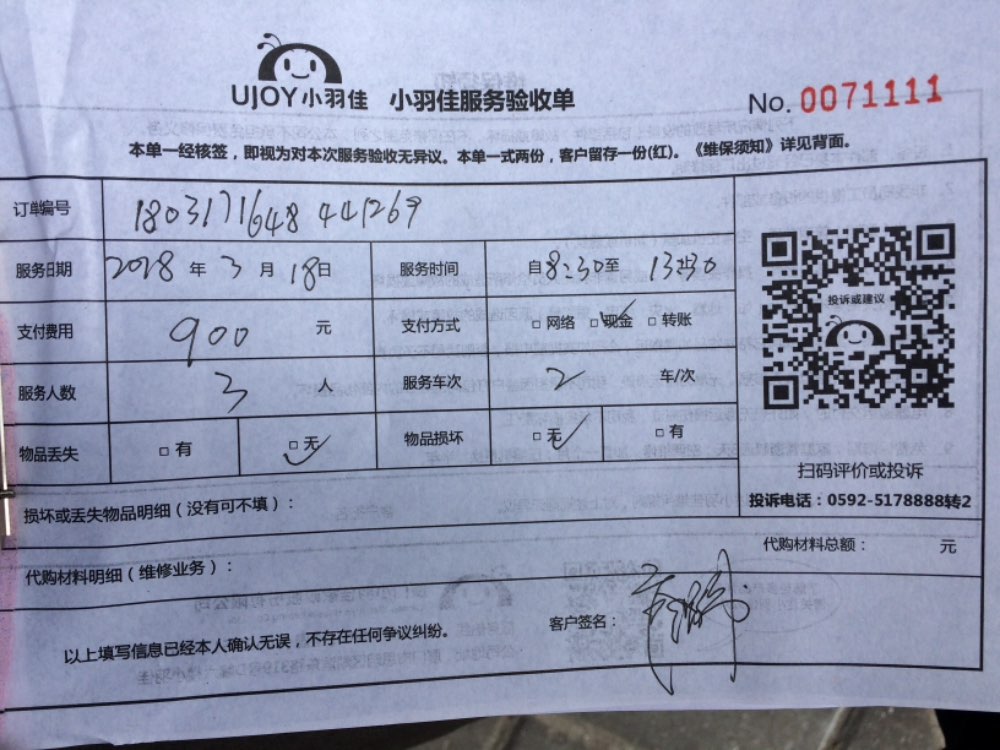 UJOY小羽佳 小羽佳服务验收单
No. 0071111
本单一经核签，即视为对本次服务验收无异议。本单一式两份，客户留存一份(红)。《维保须知》详见背面。
订单编号 1803171648441269
服务日期 2018 年 3 月 18日 服务时间 自8:30至 13:30
投诉或建议
支付费用 900 元 支付方式 □ 网络 □ 现金 ✓ □ 转账
服务人数 3 人 服务车次 2 车/次
物品丢失 □ 有 □ 无 ✓ 物品损坏 □ 无 ✓ □ 有
扫码评价或投诉
投诉电话：0592-5178888转2
损坏或丢失物品明细（没有可不填）：
代购材料总额： 元
代购材料明细（维修业务）：
以上填写信息已经本人确认无误，不存在任何争议纠纷。 客户签名：